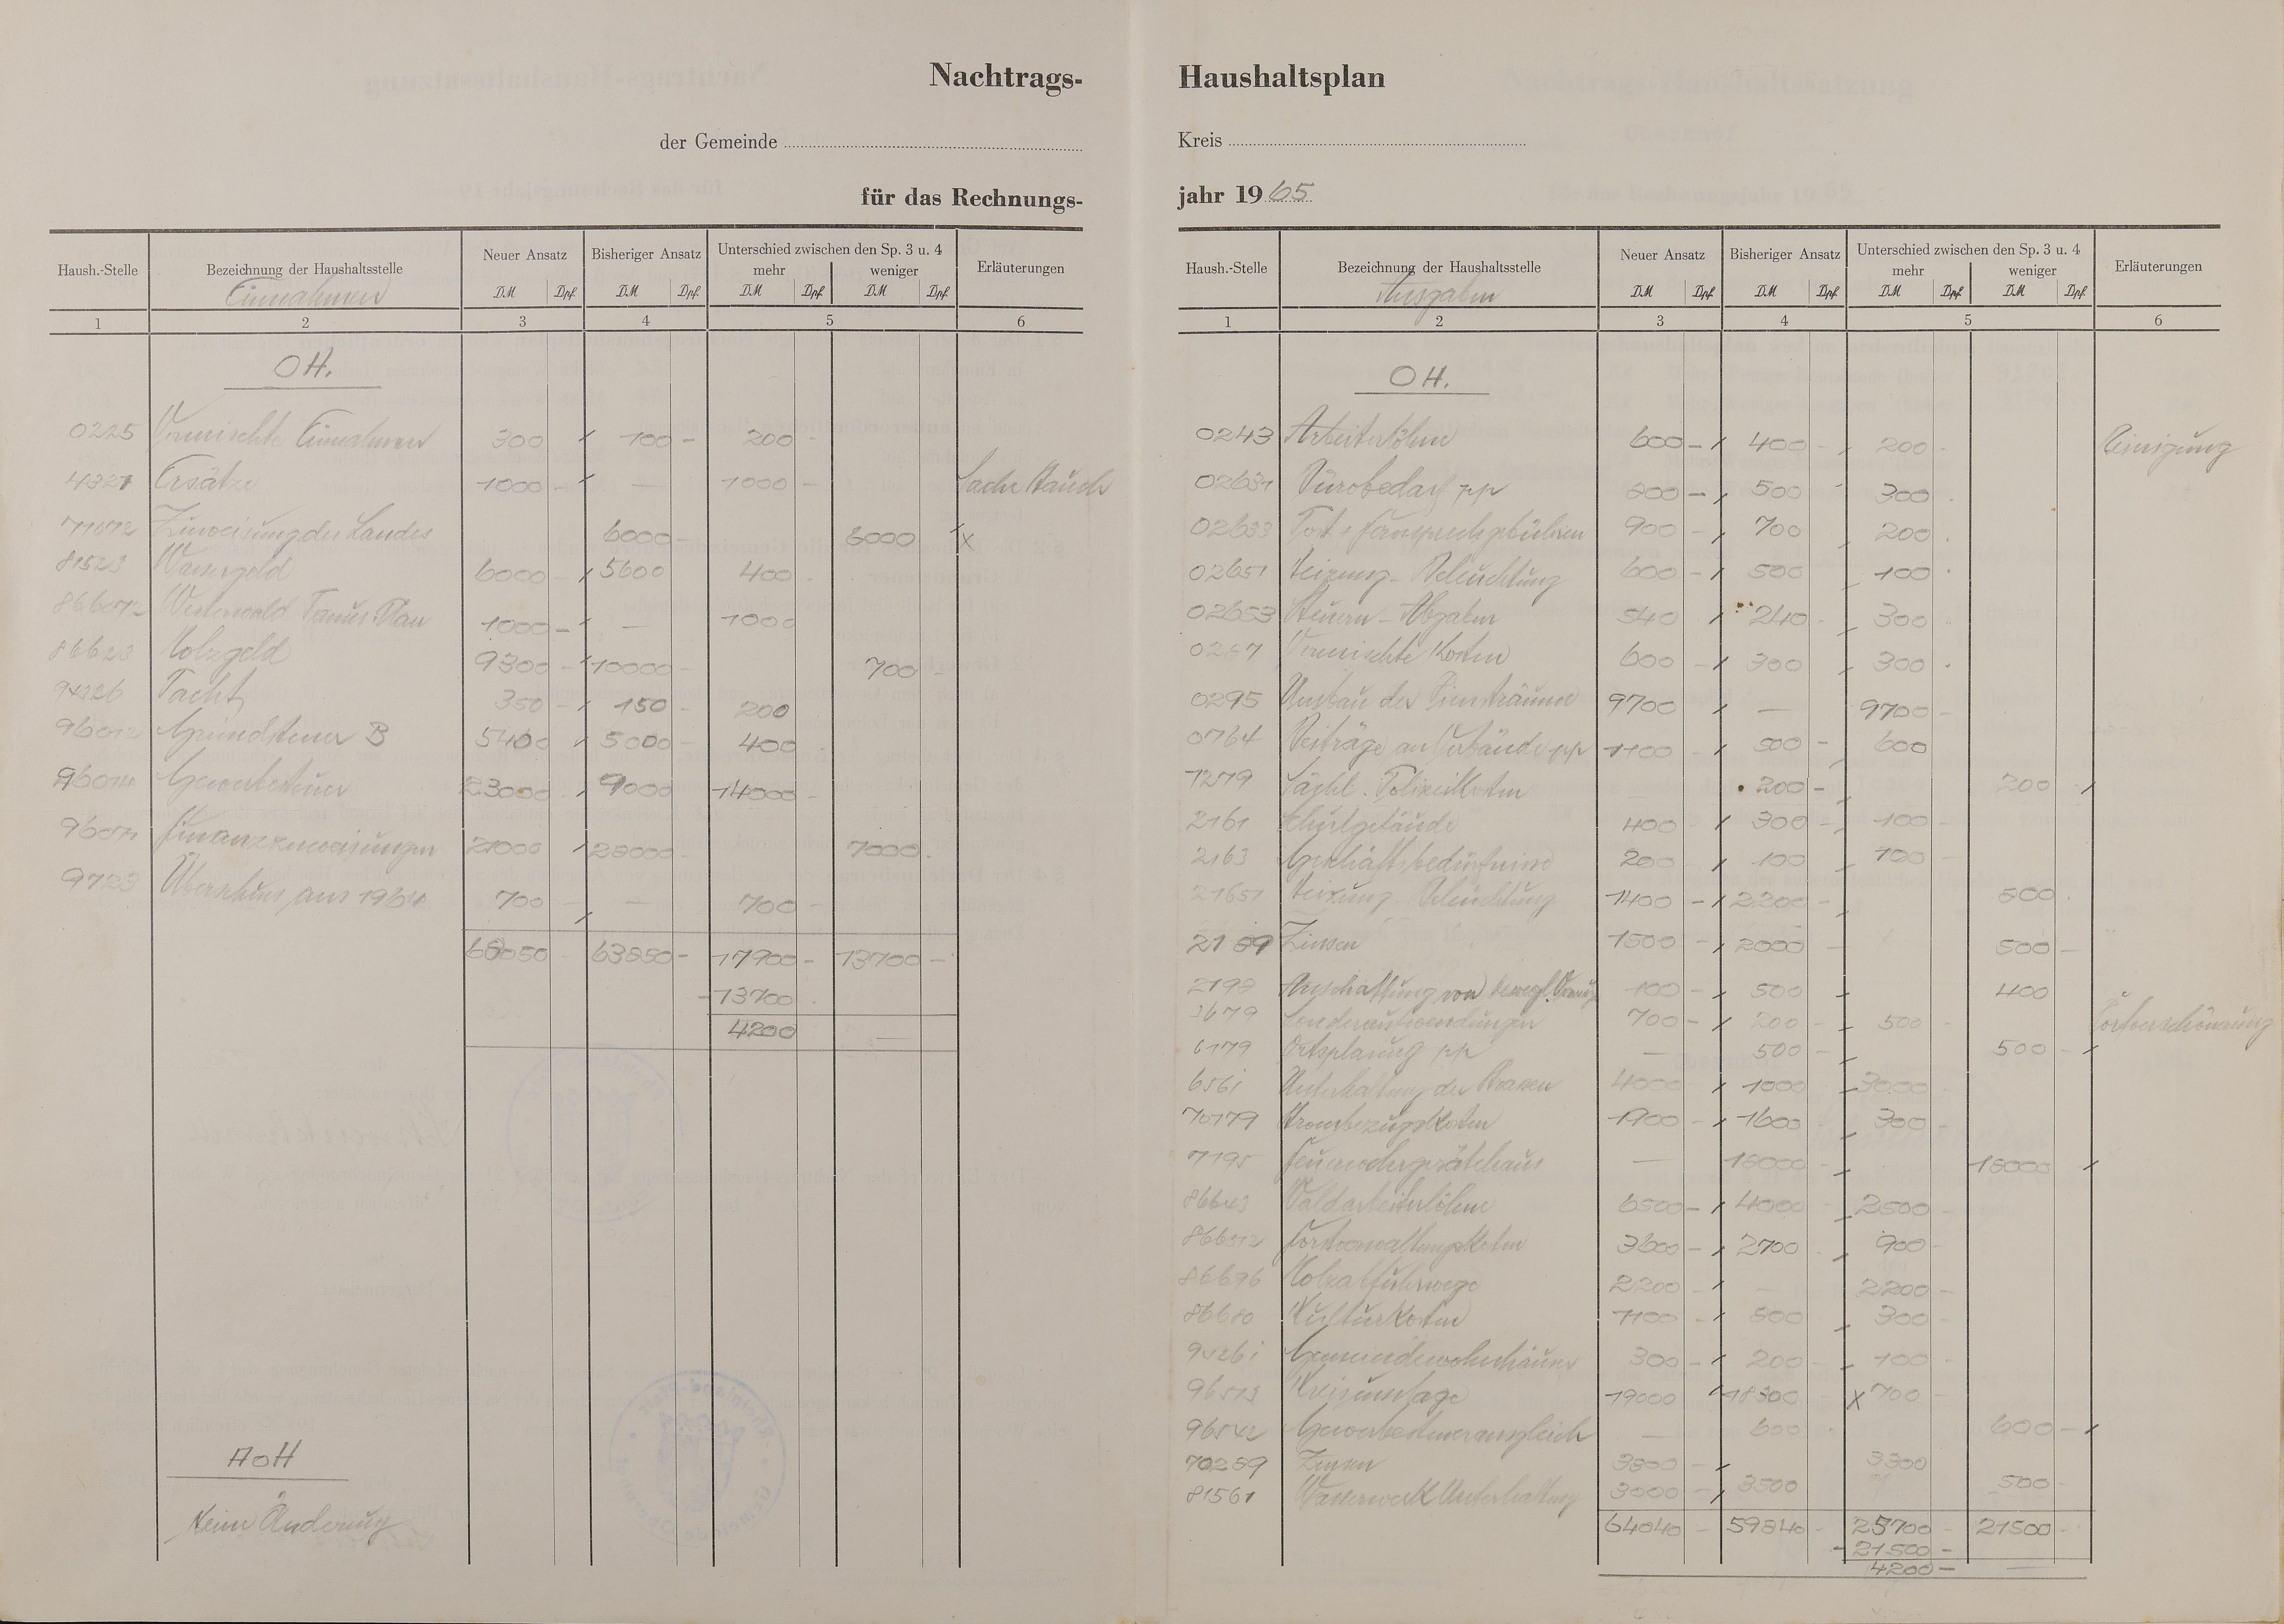 Nachtrags-
der Gemeinde
für das Rechnungs-
Haush.-Stelle Bezeichnung der Haushaltsstelle Neuer Ansatz Bisheriger Ansatz Unterschied zwischen den Sp. 3 u. 4 Erläuterungen
mehr weniger
Einnahmen DM Dpf. DM Dpf. DM Dpf. DM Dpf.
1 2 3 4 5 6
OH.
0225 Vermischte Einnahmen 300 100 - 200 -
4321 Ersätze 1000 - — 1000 - Sache Stauch
Zuweisung des Landes 6000 - 6000 X
81523 Wassergeld 6000 - 5600 400 -
Westerwald Taunus Plan 1000 - — 1000
86623 Holzgeld 9300 - 10000 - 700 -
94226 Pacht 350 - 150 - 200
96012 Grundsteuer B 5400 5000 - 400
96014 Gewerbesteuer 23000 9000 14000 -
Finanzzuweisungen 21000 28000 - 7000 -
9723 Überschuss aus 1964 700 - — 700 -
68050 - 63850 - 17900 - 13700 -
- 13700
4200 —
AOH
Keine Änderung
Haushaltsplan
Kreis
jahr 1965
Haush.-Stelle Bezeichnung der Haushaltsstelle Neuer Ansatz Bisheriger Ansatz Unterschied zwischen den Sp. 3 u. 4 Erläuterungen
mehr weniger
Ausgaben DM Dpf. DM Dpf. DM Dpf. DM Dpf.
1 2 3 4 5 6
OH.
0243 Arbeiterlöhne 600 - 400 - 200 - Reinigung
02631 Bürobedarf pp 800 - 500 300
02633 Post + Fernsprechgebühren 900 - 700 200
02651 Heizung - Beleuchtung 600 - 500 100
02653 Steuern - Abgaben 540 240 - 300
0267 Vermischte Kosten 600 - 300 300
0295 Umbau der Diensträume 9700 — 9700 -
0764 Beiträge an Verbände pp 1100 - 500 - 600
1279 Sächl. Polizeikosten 200 - 200
2161 Schulgebäude 400 - 300 - 100 -
2163 Geschäftsbedürfnisse 200 100 100 -
21651 Heizung - Beleuchtung 1400 - 2200 - 800
2189 Zinsen 1500 - 2000 500 -
2198 Anschaffung von bewegl. 100 - 500 400
3679 Sonderaufwendungen 700 - 200 - 500 - Ortverschönerung
6179 Ortsplanung pp — 500 - 500 -
6561 Unterhaltung der Strassen 4000 1000 3000
70179 Strombezugskosten 1900 - 1600 300 -
7195 Feuerwehrgerätehaus — 18000 - 18000
86643 Waldarbeiterlöhne 6500 - 4000 2500
Forstverwaltungskosten 3600 - 2700 900 -
86696 Holzabfuhrwege 2200 - — 2200 -
86680 Kulturkosten 1100 - 800 300 -
94261 Gemeindewohnhäuser 300 - 200 - 100 -
96513 Kreisumlage 19000 18300 X 700 -
96542 Gewerbesteuerausgleich — 600 600 -
70289 Zinsen 3300 - 3300
81561 Wasserwerk Unterhaltung 3000 - 3500 500 -
64040 - 59840 - 25700 - 21500 -
- 21500 -
4200 - —